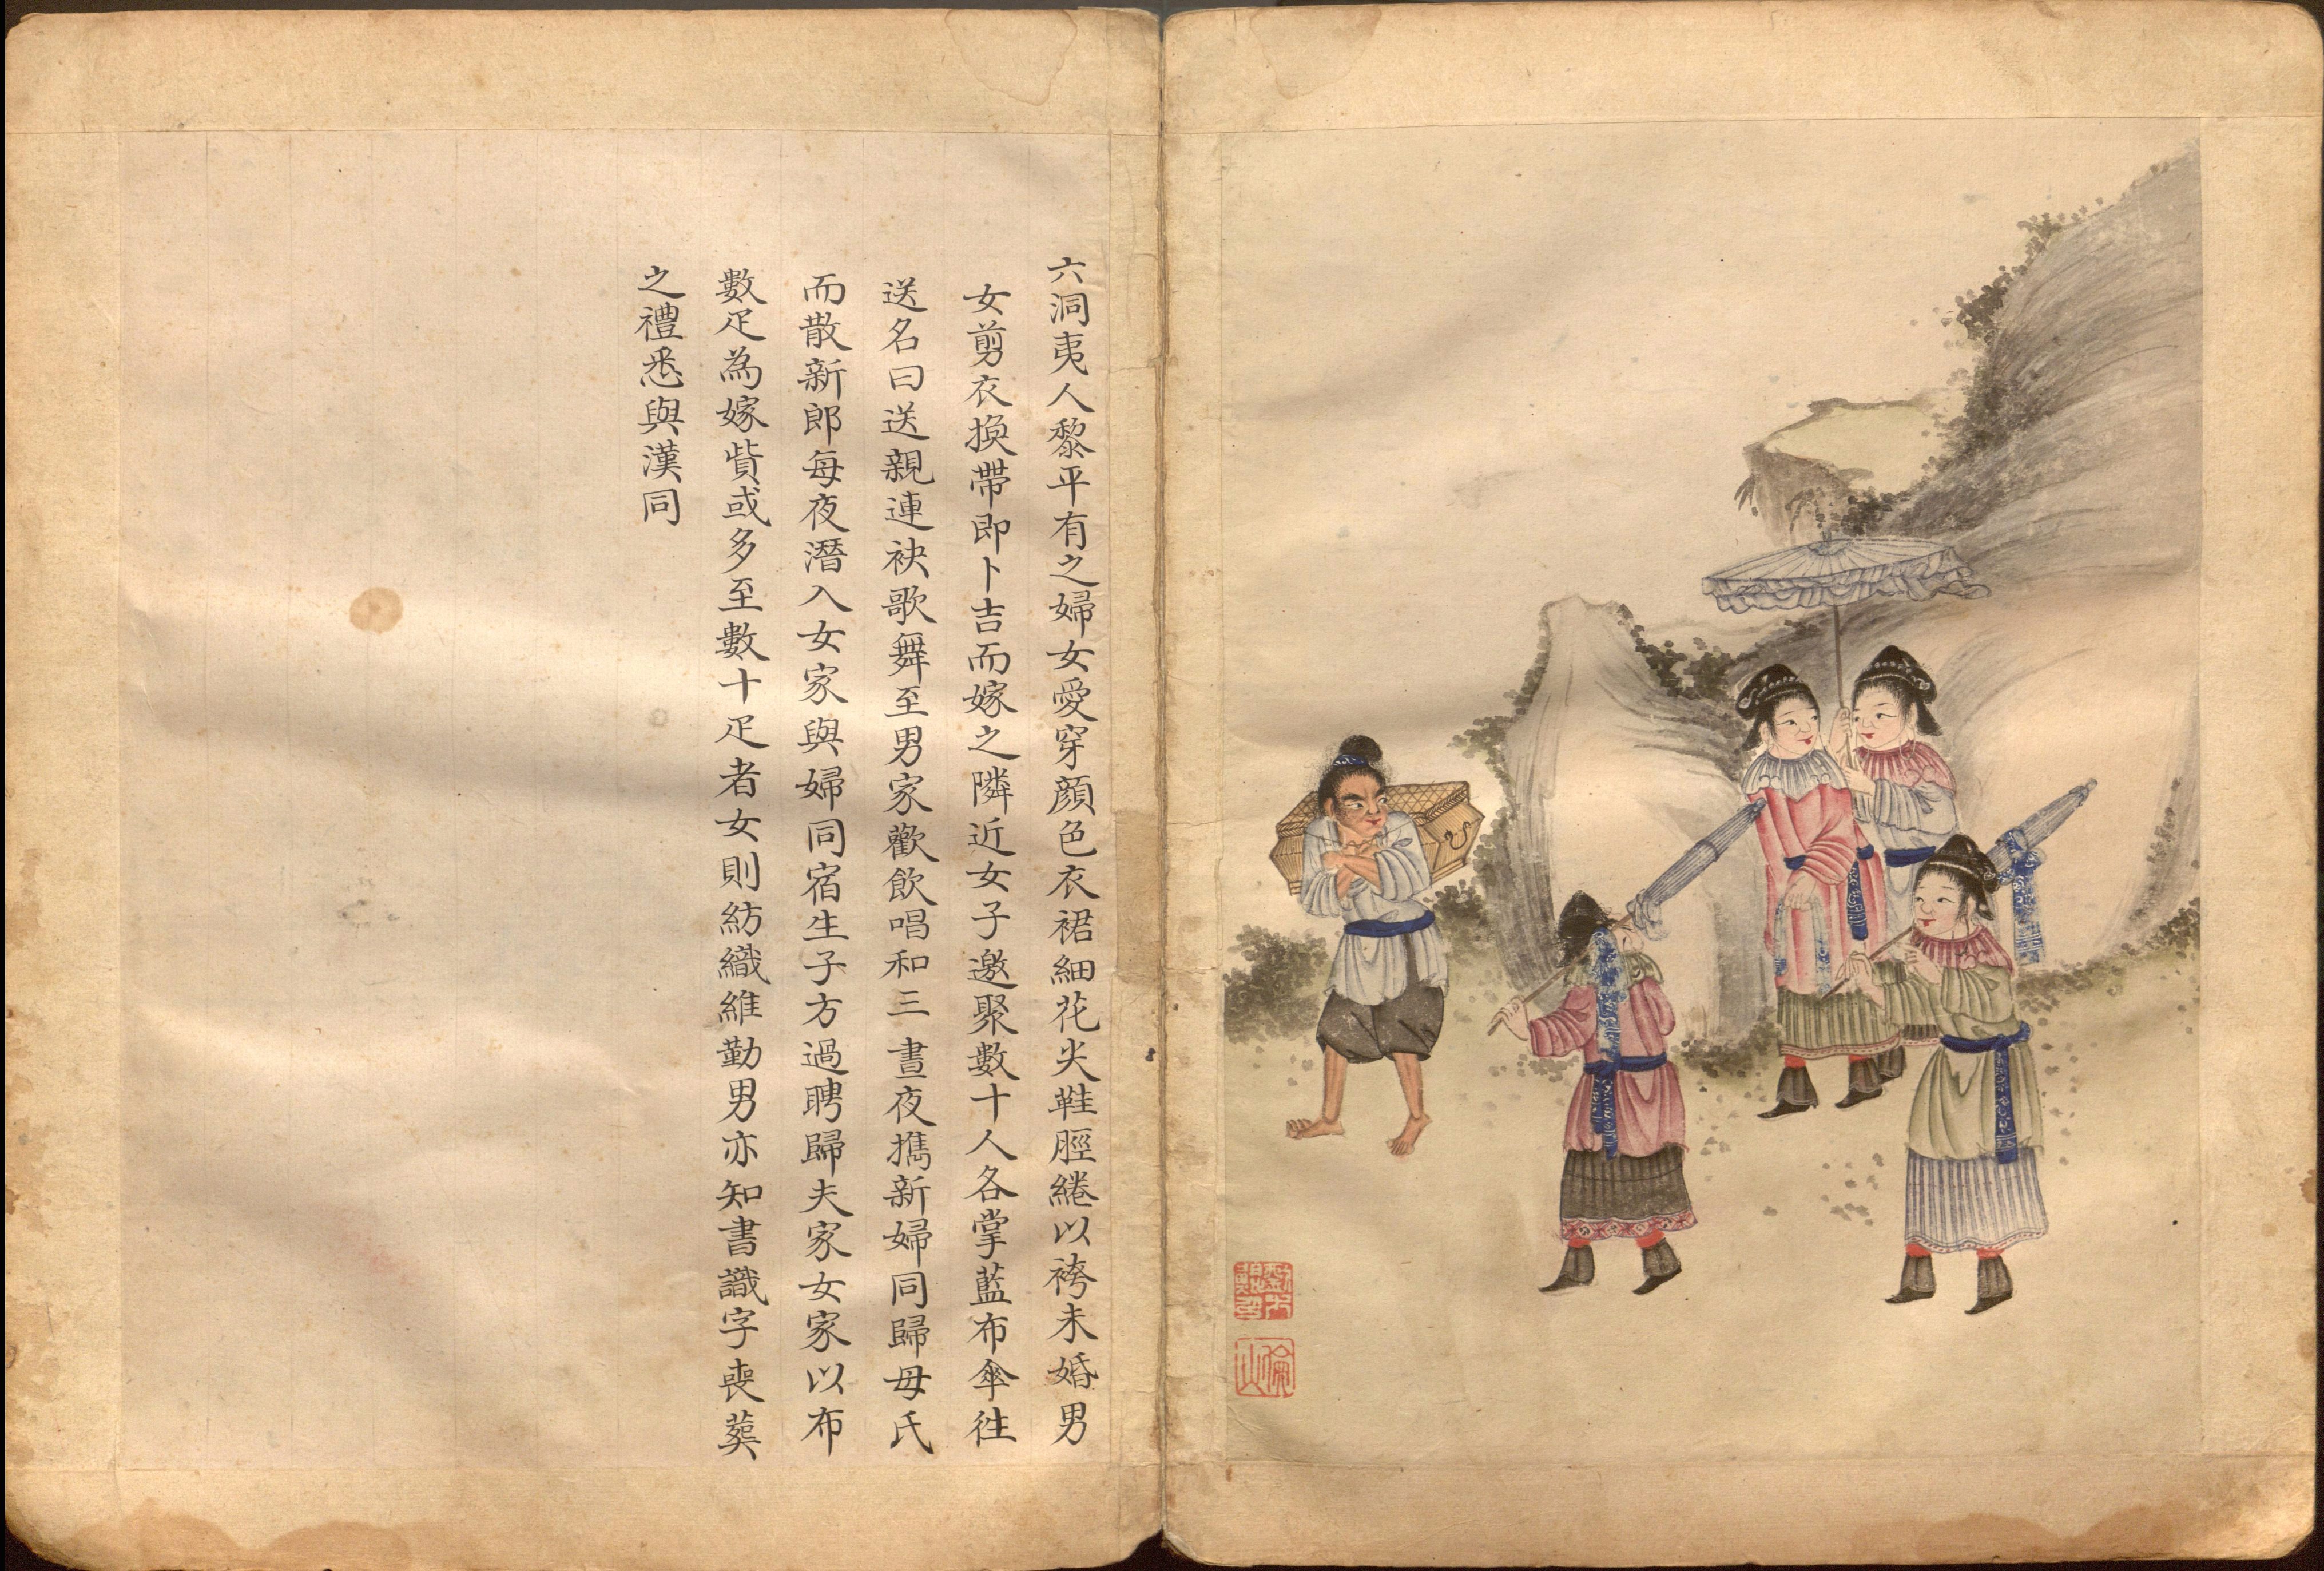 六洞夷人黎平有之婦女愛穿顏色衣裙細花尖鞋脛綣以袴未婚男
女剪衣換帶即卜吉而嫁之隣近女子邀聚數十人各掌藍布傘徃
送名曰送親連袂歌舞至男家歡飲唱和三晝夜擕新婦同歸母氏
而散新郎每夜潛入女家與婦同宿生子方過聘歸夫家女家以布
數疋為嫁貲或多至數十疋者女則紡織維勤男亦知書識字喪葬
之禮悉與漢同